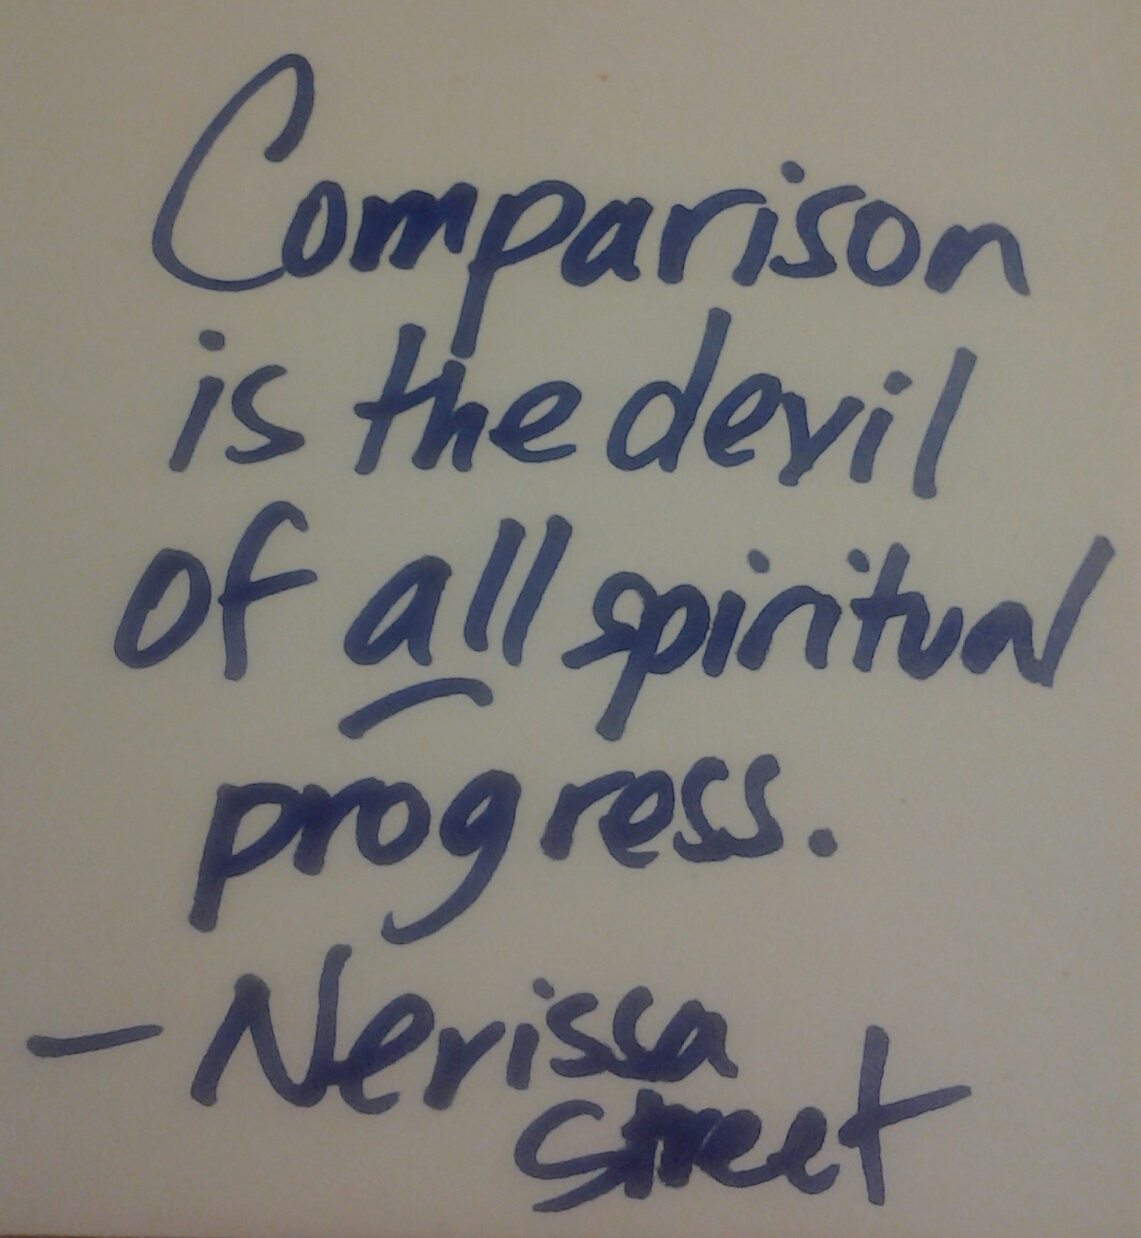 Comparison
is the devil
of all spiritual
progress.
- Nerissa
Street